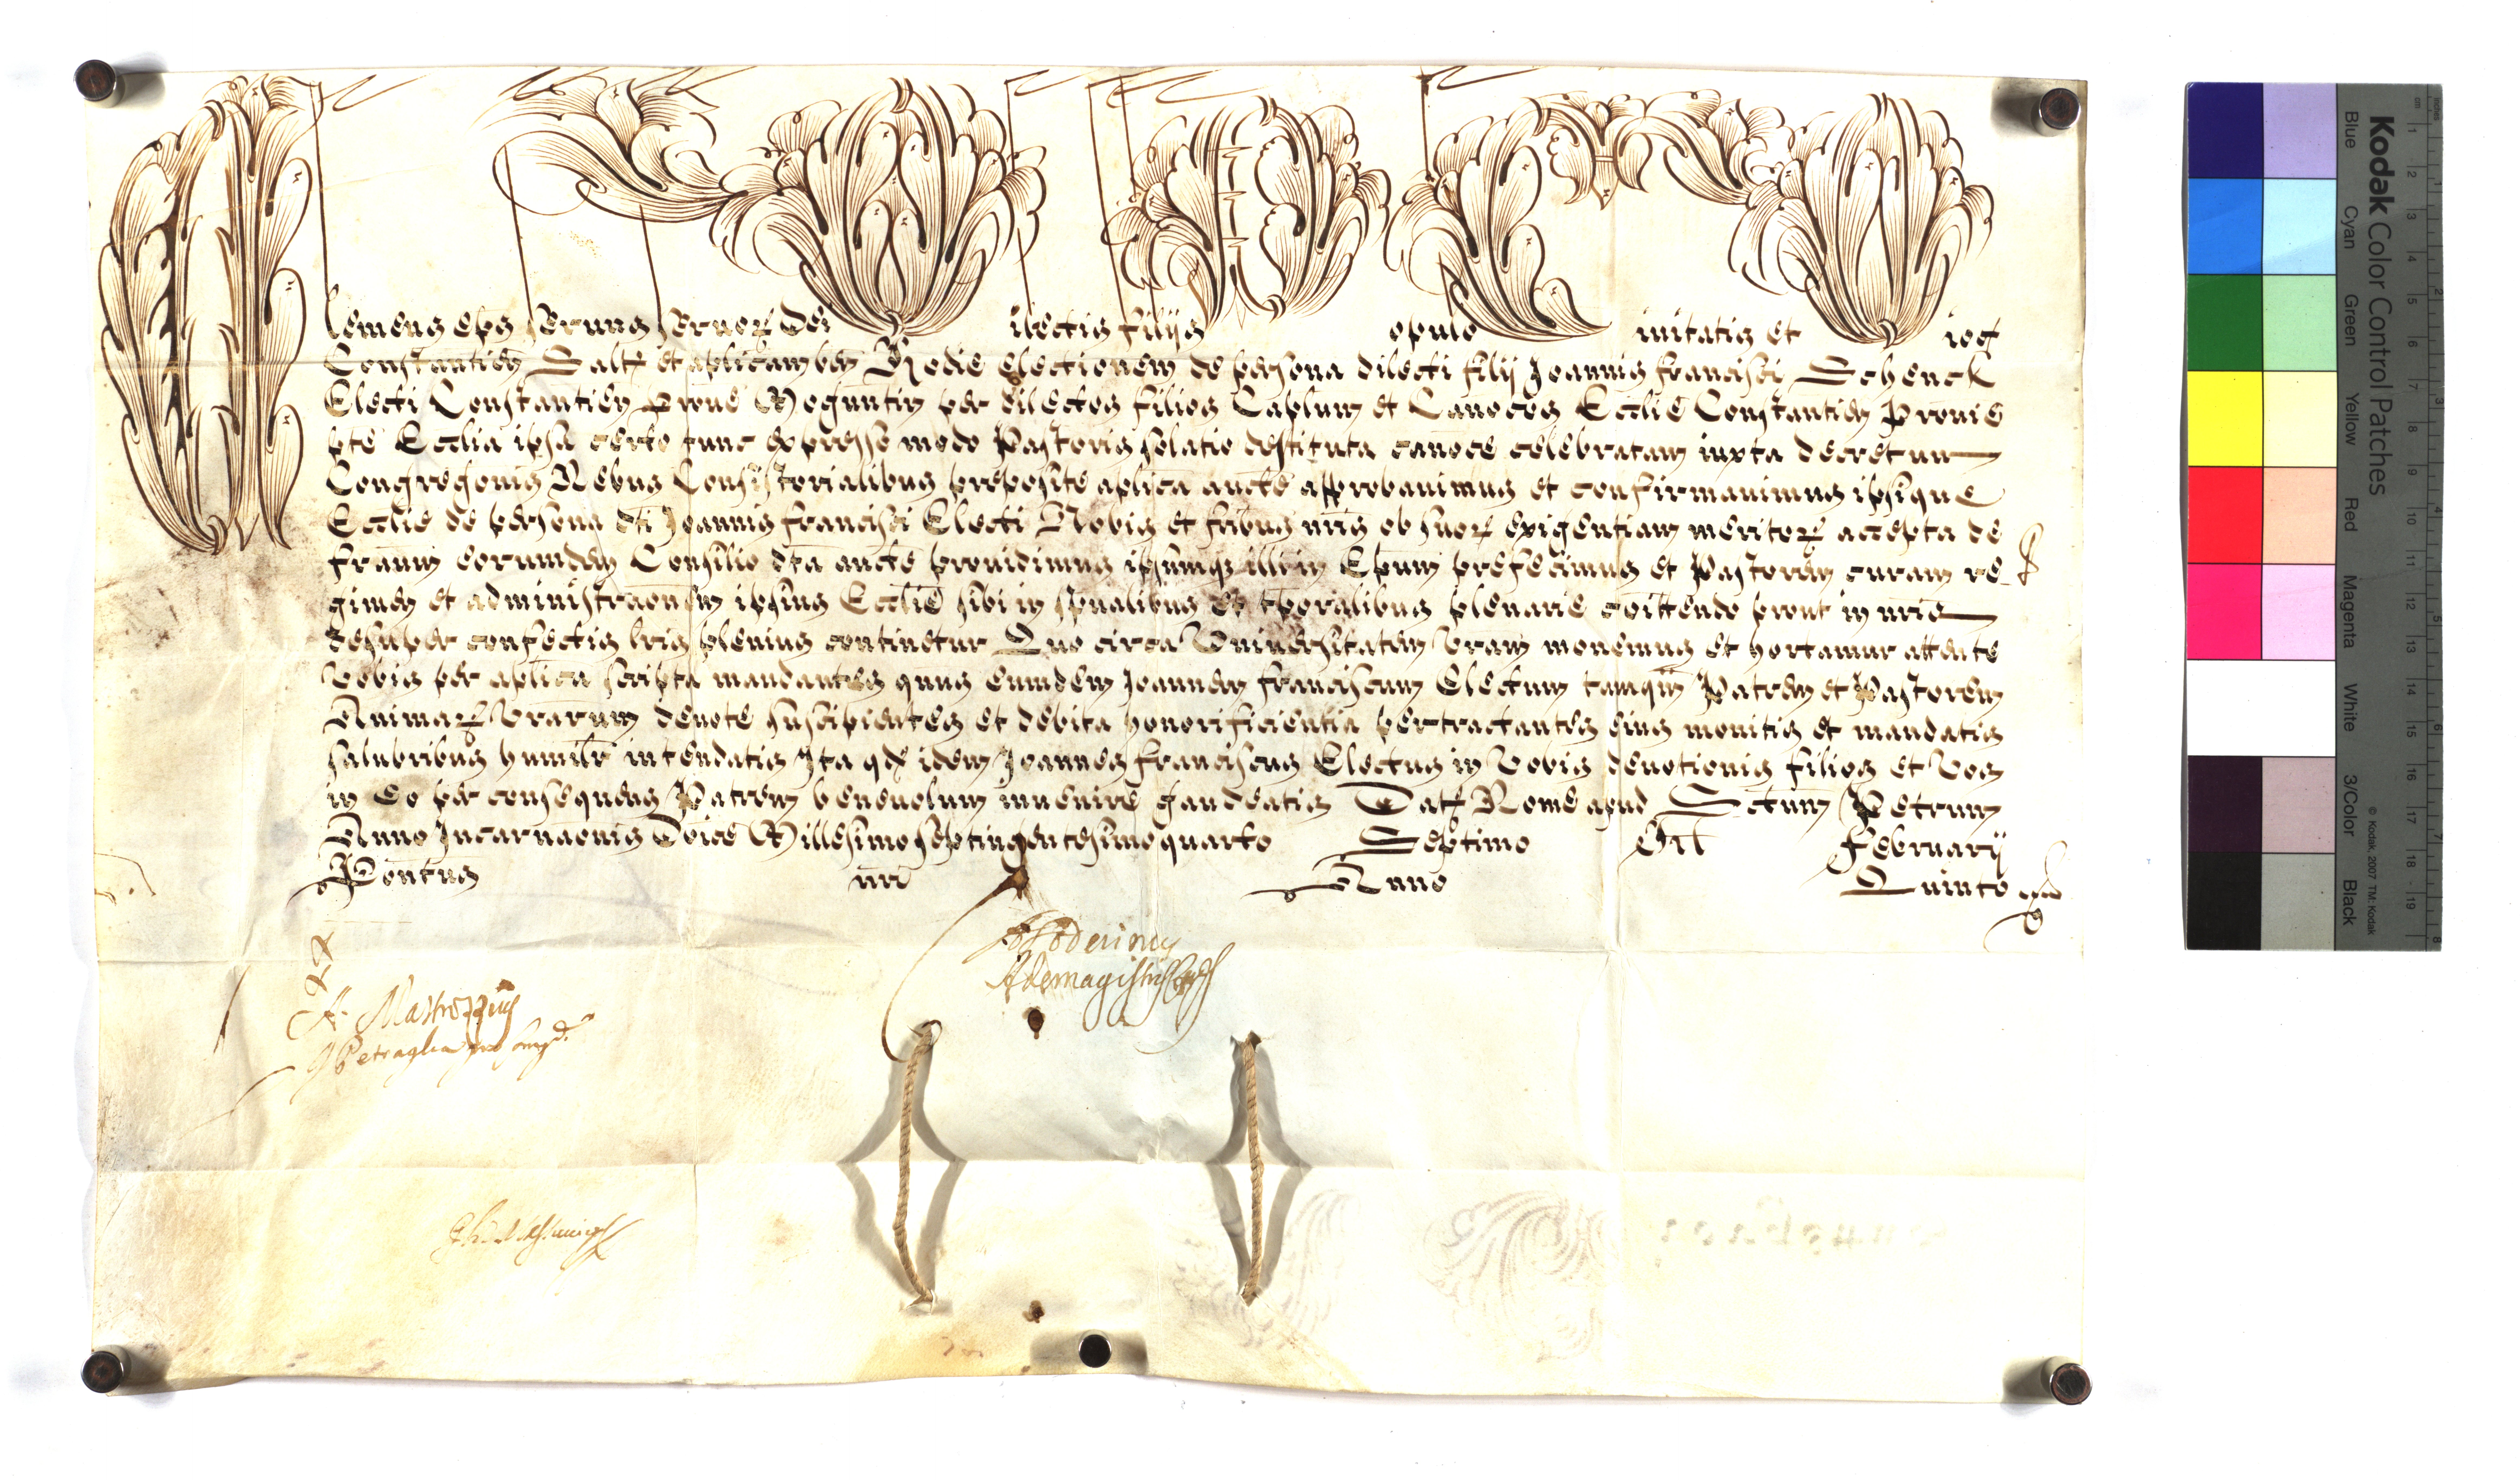 Clemens eps servus servoꝝ Dei Dilectis filijs Populo Civitatis et Dioc
Constantieñ Saltem et aplicam beñ Hodie electionem de persona dilecti filij Joannis Francisci Schenck
Electi Constantieñ Provie Moguntin per dilectos filios Caplum et Canocos Ecclie Constantieñ Provie
pte Ecclia ipsa certo tunc expresso modo Pastoris solatio destituta canoce celebratam iuxta decretum
Congregonis Rebus Consistorialibus preposite aplica aucte approbavimus et confirmavimus ipsique
Ecclie de persona dti Joannis Francisci Electi Nobis et fribus nris ob suoꝝ exigentiam meritoꝝ accepta de
fratrum eorumdem Consilio dta aucte providimus ipsumqꝫ illi in Epum prefecimus et Pastorem curam re
gimen et administraonem ipsius Ecclie sibi in spualibus et tporalibus plenarie coittendo prout in nris
desuper confectis lris plenius continetur Quo circa Universitatem vram monemus et hortamur attente
Vobis per aplica scripta mandantes qnus eumdem Joannem Franciscum Electum tamqm Patrem et Pastorem
Animaꝝ Vrarum devote suscipientes et debita honorificientia pertractantes eius monitis et mandatis
salubribus humilr intendatis Ita qd idem Joannes Franciscus Electus in Vobis devotionis filios et Vos
in eo per consequens Patrem benevolum invenire gaudeatis Dat Rome apud Sctum Petrum
Anno Incarnaonis Dnice Millesimo septingentesimo quarto Septimo Idl Februarij
Pontus nri Anno Quinto
A. Mastrozzius
Petraglia
Kodak Color Control Patches
Blue Cyan Green Yellow Red Magenta White 3/Color Black
© Kodak, 2007 TM: Kodak
cm 1 2 3 4 5 6 7 8 9 10 11 12 13 14 15 16 17 18 19
inches 1 2 3 4 5 6 7 8